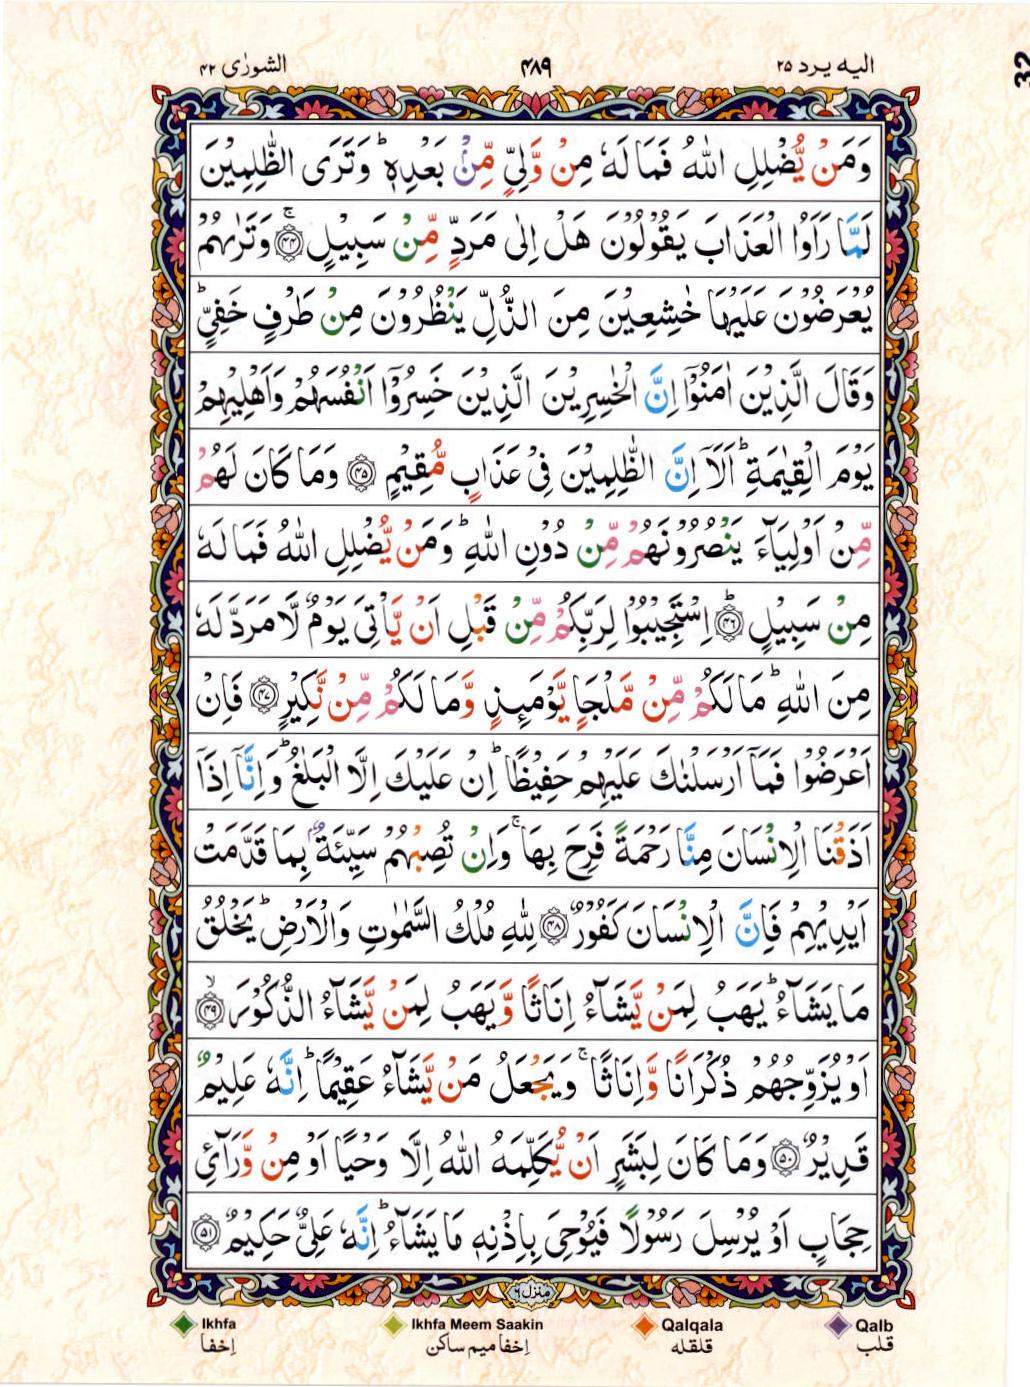 الشورٰی ۴۲
۴۸۹
الیہ یرد ۲۵
32
وَمَنْ یُّضْلِلِ اللّٰہُ فَمَا لَہٗ مِنْ وَّلِیٍّ مِّنْۢ بَعْدِہٖ ؕ وَتَرَی الظّٰلِمِیْنَ
لَمَّا رَاَوُا الْعَذَابَ یَقُوْلُوْنَ ہَلْ اِلٰی مَرَدٍّ مِّنْ سَبِیْلٍ ۚ﴿۴۴﴾ وَتَرٰىہُمْ
یُعْرَضُوْنَ عَلَیْہَا خٰشِعِیْنَ مِنَ الذُّلِّ یَنْظُرُوْنَ مِنْ طَرْفٍ خَفِیٍّ ؕ
وَقَالَ الَّذِیْنَ اٰمَنُوْۤا اِنَّ الْخٰسِرِیْنَ الَّذِیْنَ خَسِرُوْۤا اَنْفُسَہُمْ وَاَہْلِیْہِمْ
یَوْمَ الْقِیٰمَۃِ ؕ اَلَاۤ اِنَّ الظّٰلِمِیْنَ فِیْ عَذَابٍ مُّقِیْمٍ ﴿۴۵﴾ وَمَا کَانَ لَہُمْ
مِّنْ اَوْلِیَآءَ یَنْصُرُوْنَہُمْ مِّنْ دُوْنِ اللّٰہِ ؕ وَمَنْ یُّضْلِلِ اللّٰہُ فَمَا لَہٗ
مِنْ سَبِیْلٍ ؕ﴿۴۶﴾ اِسْتَجِیْبُوْا لِرَبِّکُمْ مِّنْ قَبْلِ اَنْ یَّاْتِیَ یَوْمٌ لَّا مَرَدَّ لَہٗ
مِنَ اللّٰہِ ؕ مَا لَکُمْ مِّنْ مَّلْجَاٍ یَّوْمَئِذٍ وَّمَا لَکُمْ مِّنْ نَّکِیْرٍ ﴿۴۷﴾ فَاِنْ
اَعْرَضُوْا فَمَاۤ اَرْسَلْنٰکَ عَلَیْہِمْ حَفِیْظًا ؕ اِنْ عَلَیْکَ اِلَّا الْبَلٰغُ ؕ وَاِنَّاۤ اِذَاۤ
اَذَقْنَا الْاِنْسَانَ مِنَّا رَحْمَۃً فَرِحَ بِہَا ۚ وَاِنْ تُصِبْہُمْ سَیِّئَۃٌۢ بِمَا قَدَّمَتْ
اَیْدِیْہِمْ فَاِنَّ الْاِنْسَانَ کَفُوْرٌ ﴿۴۸﴾ لِلّٰہِ مُلْکُ السَّمٰوٰتِ وَالْاَرْضِ ؕ یَخْلُقُ
مَا یَشَآءُ ؕ یَہَبُ لِمَنْ یَّشَآءُ اِنَاثًا وَّیَہَبُ لِمَنْ یَّشَآءُ الذُّکُوْرَ ۙ﴿۴۹﴾
اَوْ یُزَوِّجُہُمْ ذُکْرَانًا وَّاِنَاثًا ۚ وَیَجْعَلُ مَنْ یَّشَآءُ عَقِیْمًا ؕ اِنَّہٗ عَلِیْمٌ
قَدِیْرٌ ﴿۵۰﴾ وَمَا کَانَ لِبَشَرٍ اَنْ یُّکَلِّمَہُ اللّٰہُ اِلَّا وَحْیًا اَوْ مِنْ وَّرَآئِ
حِجَابٍ اَوْ یُرْسِلَ رَسُوْلًا فَیُوْحِیَ بِاِذْنِہٖ مَا یَشَآءُ ؕ اِنَّہٗ عَلِیٌّ حَکِیْمٌ ﴿۵۱﴾
منزل ۶
Ikhfa
اِخفا
Ikhfa Meem Saakin
اِخفا میم ساکن
Qalqala
قلقلہ
Qalb
قلب